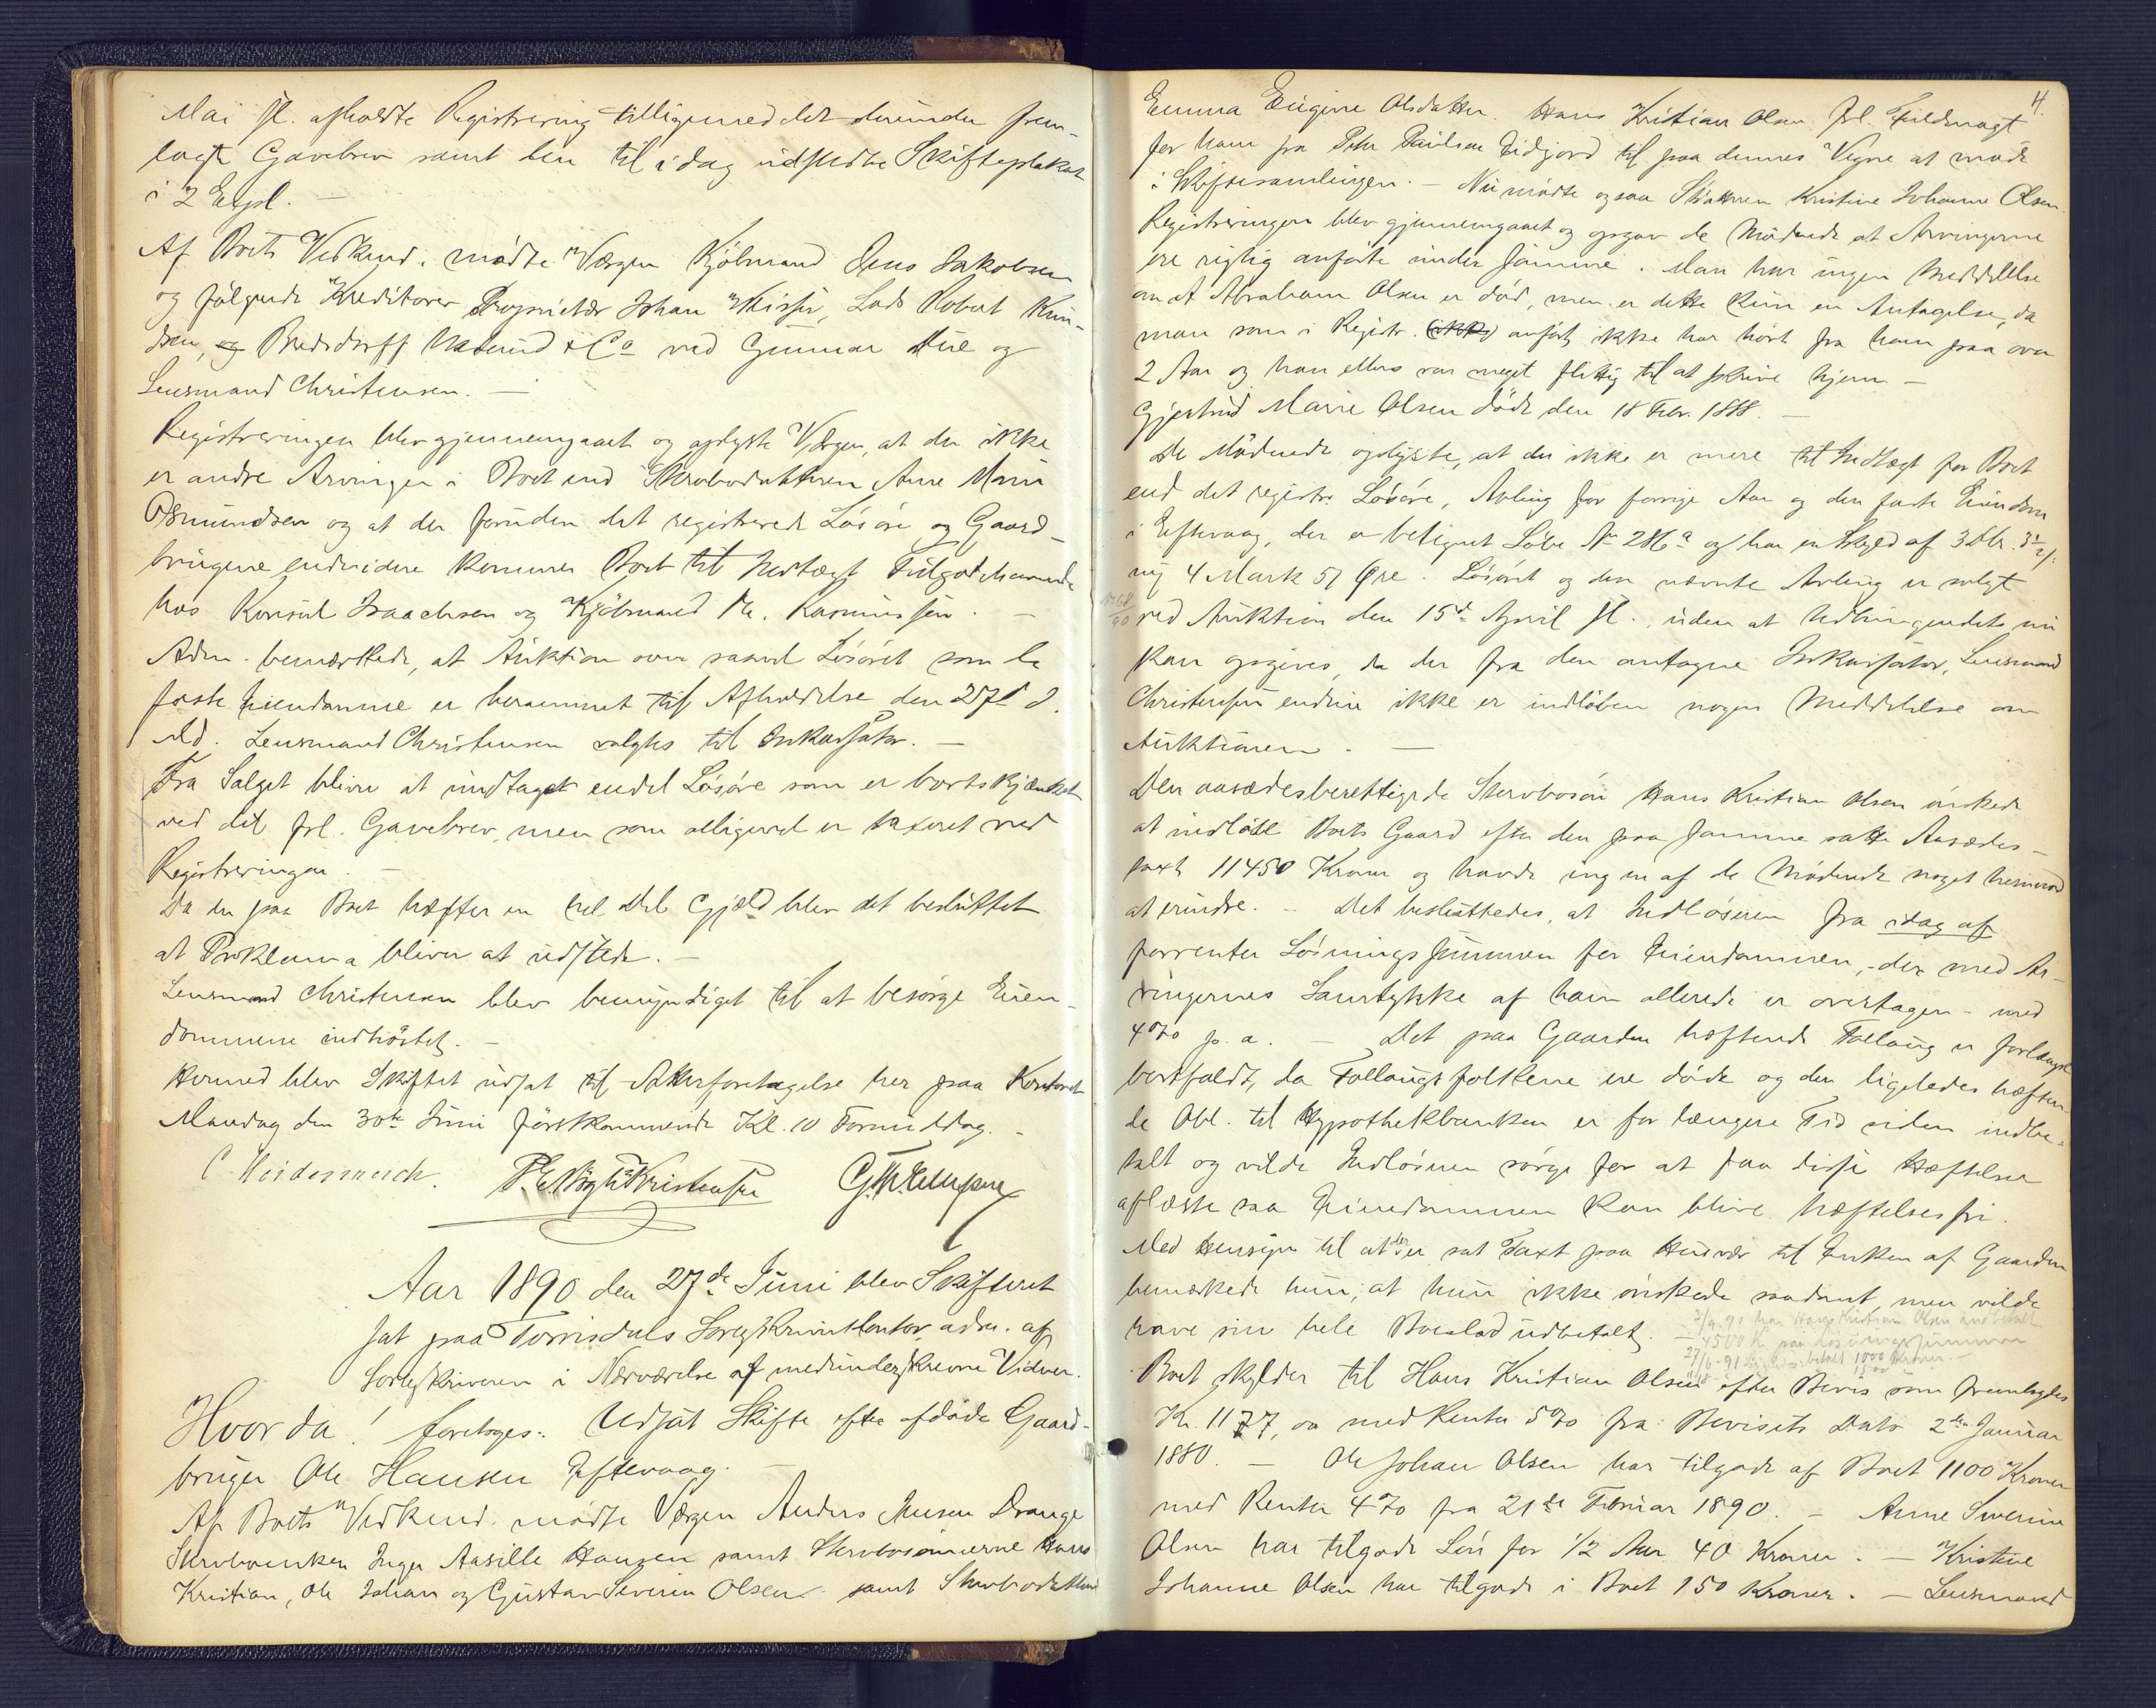 Mai sl. afholdte Registrering tilligemed det derunder frem-
lagte Gavebrev samt den til idag udstedte Skifteplakat
i 2 Expl. —
Af Boets Vedkend. mødte Værgen Kjøbmand Jens Jakobsen
og følgende Kreditorer Proprietær Johan, Lods Robert Knu-
dsen, og Bredsdorff & Co ved Gunnar og
Lensmand Christensen. —
Registreringen blev gjennemgaaet og oplyste Værgen, at der ikke
er andre Arvinger i Boet end Stervbodatteren Anne Marie
Osmundsen og at der foruden det registrerede Løsøre og Gaard-
brugene endvidere kommer Boet til Indtægt Tilgodehavende
hos Konsul Isaachsen og Kjøbmand M. Rasmussen. —
Adm. bemærkede, at Auktion over saavel Løsøret som de
faste Eiendomme er berammet til Afholdelse den 27de d.
Md. Lensmand Christensen valgtes til Inkassator. —
Fra Salget bliver at undtaget endel Løsøre som er bortskjænket
ved det frl. Gavebrev, men som alligevel er taxeret ved
Registreringen. —
Da der paa Boet hæfter en hel Del Gjæld blev det besluttet
at Proklama bliver at udstede. —
Lensmand Christensen blev bemyndiget til at besørge Eien-
dommene indhøstet. —
Hermed blev Skiftet udsat til Atterforetagelse her paa Kontoret
Mandag den 30te Juni førstkommende Kl. 10 Formiddag. —
C. Heidenreich.
Aar 1890 den 27de Juni blev Skifteret
sat paa Torrisdals Sorenskriverkontor adm. af
Sorenskriveren i Nærværelse af medunderskrevne Vidner.
Hvor da! foretoges: Udsat Skifte efter afdøde Gaard-
bruger Ole Hansen Eftevaag. —
Af Boets Vedkend. mødte Værgen Anders Drange
Stervboenken Inger Aasille Hansen samt Stervbosønnerne Hans
Kristian, Ole Johan og Gustav Severin Olsen samt Stervbodatteren
4.
Emma Eugine Olsdatter. Hans Kristian Olsen frl. Fuldmagt
for ham fra Peder Paulsen Eidjord til paa dennes Vegne at møde
i Skiftesamlingen. — Nu mødte ogsaa Datteren Kristine Johanne Olsen.
Registreringen blev gjennemgaaet og opgav de Mødende at Arvingerne
ere rigtig anførte under samme. Man har ingen Meddelelse
om at Abraham Olsen er død, men er dette kun en Antagelse, da
man som i Registr. (ikke) anført ikke har hørt fra ham paa over
2 Aar og han ellers var meget flittig til at skrive hjem. —
Gjertrud Marie Olsen døde den 18 Febr. 1888. —
De Mødende oplyste, at der ikke er mere til Indtægt for Boet
end det registr. Løsøre, Avling for forrige Aar og den faste Eiendom
i Eftevaag, der er betegnet Løbe No 286a og har en Skyld af 3 Dlr. 3½ /:
ny 4 Mark 51 Øre. Løsøret og den nævnte Avling er solgt
No 68
90
ved Auktion den 15de April sl., uden at Udbringendets nu
kan opgives, da der fra den antagne Inkassator, Lensmand
Christensen endnu ikke er indløben nogen Meddelelse om
Auktionen. —
Den aasædesberettigede Stervbosøn Hans Kristian Olsen ønskede
at indløse Boets Gaard efter den paa samme satte Aasædes-
taxt 11450 Kroner og havde ingen af de Mødende noget herimod
at erindre. — Det besluttedes, at Indløseren fra idag af
forrenter Løsningssummen for Eiendommen, - der med Ar-
vingernes Samtykke af ham allerede er overtagen - med
4% p. a. — Det paa Gaarden hæftende Follaug er forlængst
bortfaldt, da Follaugsfolkene ere døde og den ligeledes hæften-
de Obl. til Hypothekbanken er for længere Tid siden indbe-
talt og vilde Indløseren sørge for at faa disse Hæftelser
aflæste saa Eiendommen kan blive hæftelsesfri.
Med Hensyn til at der er sat Taxt paa Husvær til Enken af Gaarden
bemærkede hun, at hun ikke ønskede saadant, men vilde
have sin hele Boeslod udbetalt. —
3/9.90 har Hans Kristian Olsen indbetalt
4500 Kr. paa Løsningssummen
27/6-91 betalt 1000 Kroner. —
Boet skylder til Hans Kristian Olsen efter Bevis som fremlagdes
Kr. 1177, og med Renter 5% fra Bevisets Dato 2den Januar
1880. — Ole Johan Olsen har tilgode af Boet 1100 Kroner
med Renter 4% fra 21de Februar 1890. — Anne Severine
Olsen har tilgode Løn for 1/2 Aar 40 Kroner. — Kristine
Johanne Olsen har tilgode i Boet 150 Kroner. — Lensmand